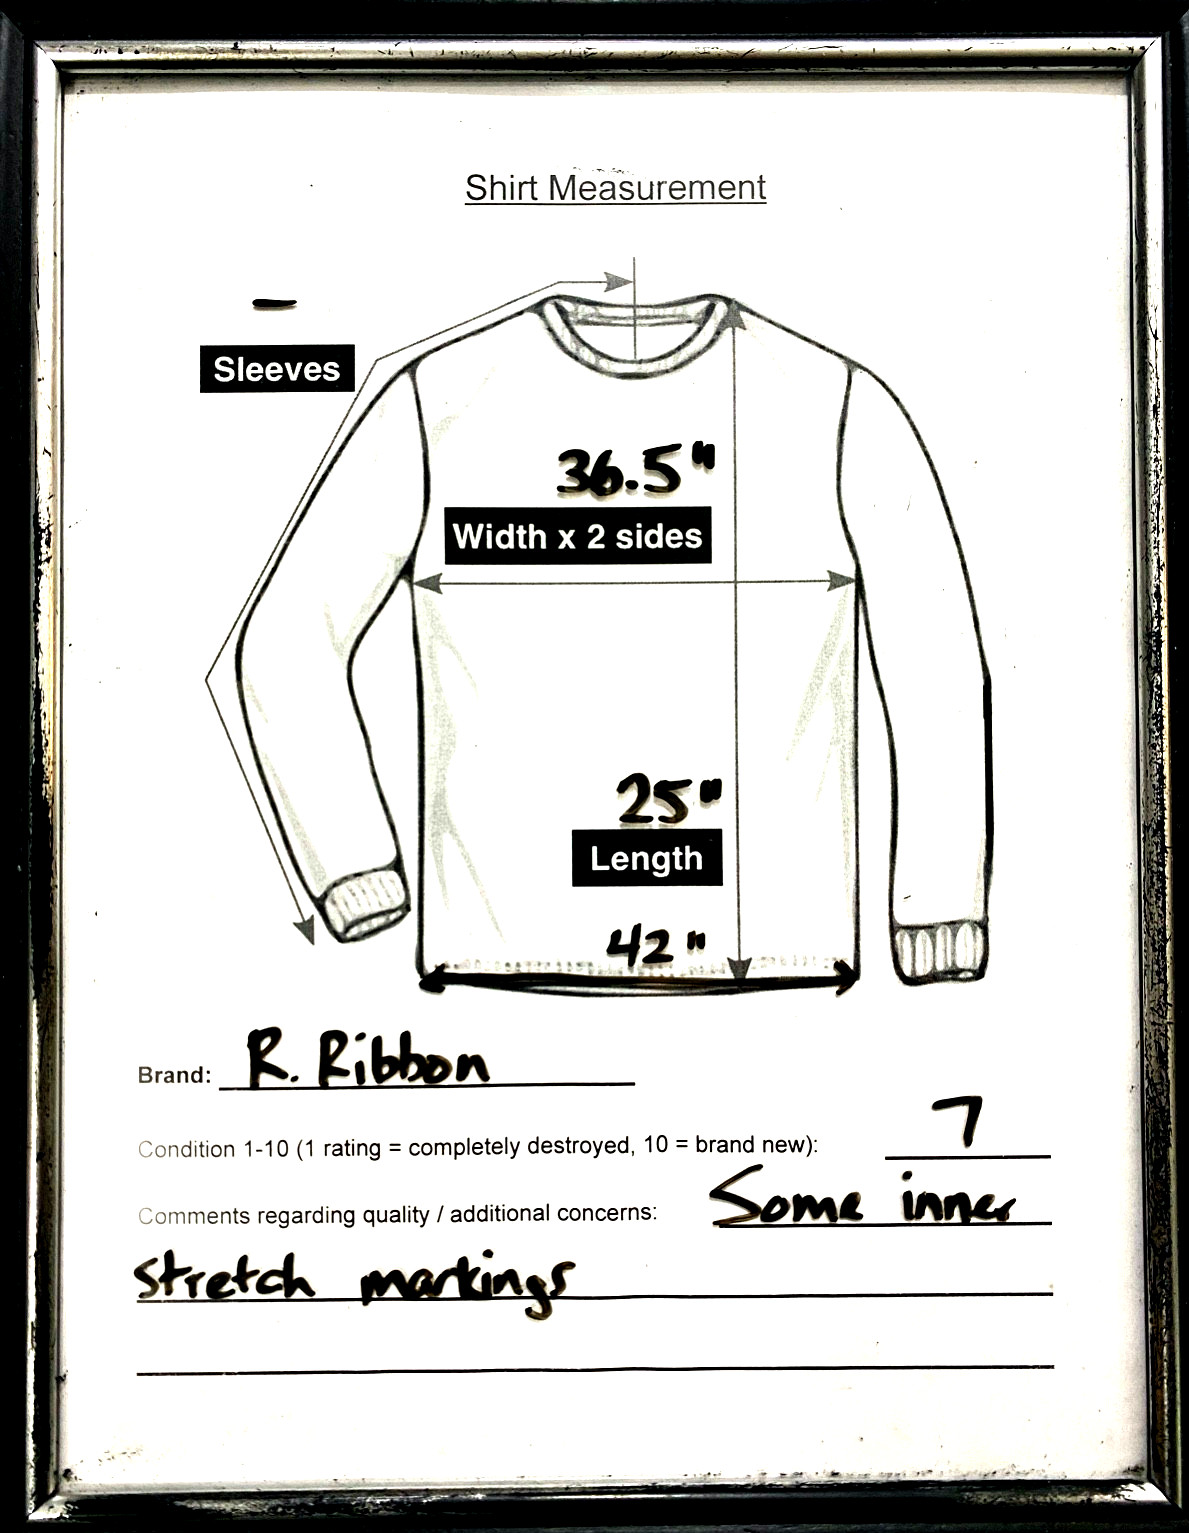 Shirt Measurement
–
Sleeves
36.5"
Width x 2 sides
25"
Length
42"
Brand: R. Ribbon
Condition 1-10 (1 rating = completely destroyed, 10 = brand new): 7
Comments regarding quality / additional concerns: Some inner
stretch markings